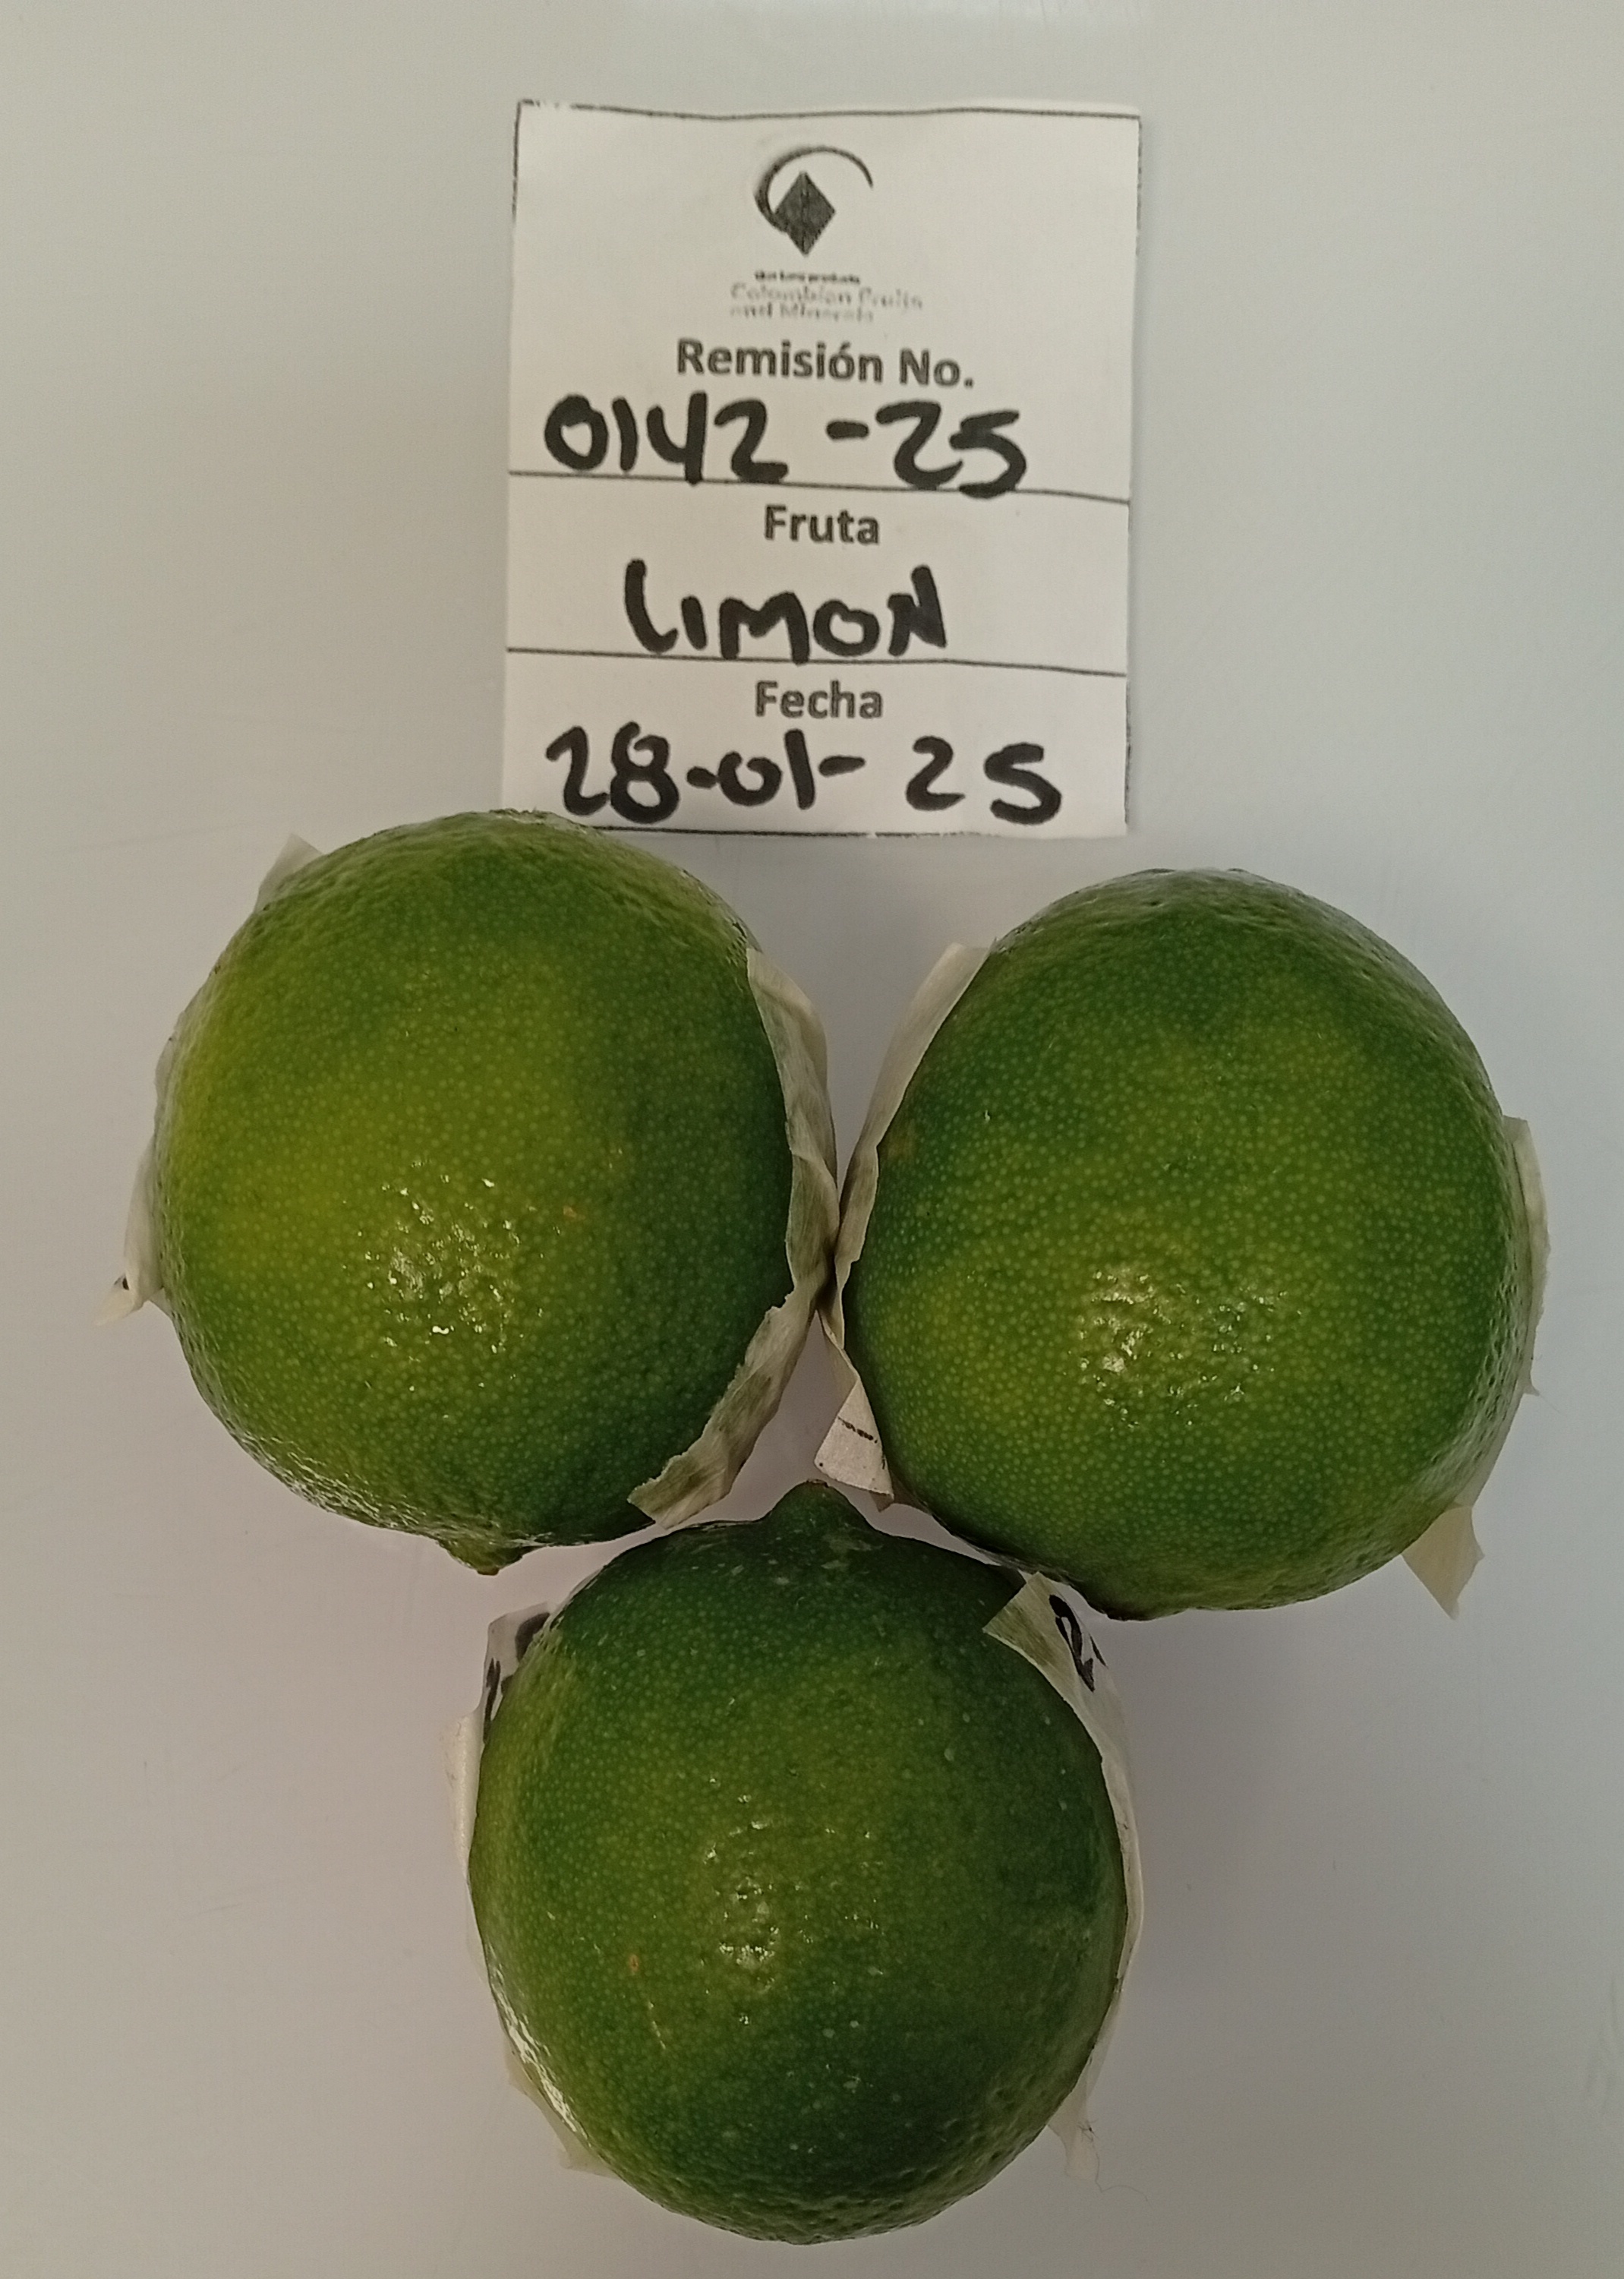 Colombian Fruits
and Minerals
Remisión No.
0142-25
Fruta
LIMON
Fecha
28-01-25
2